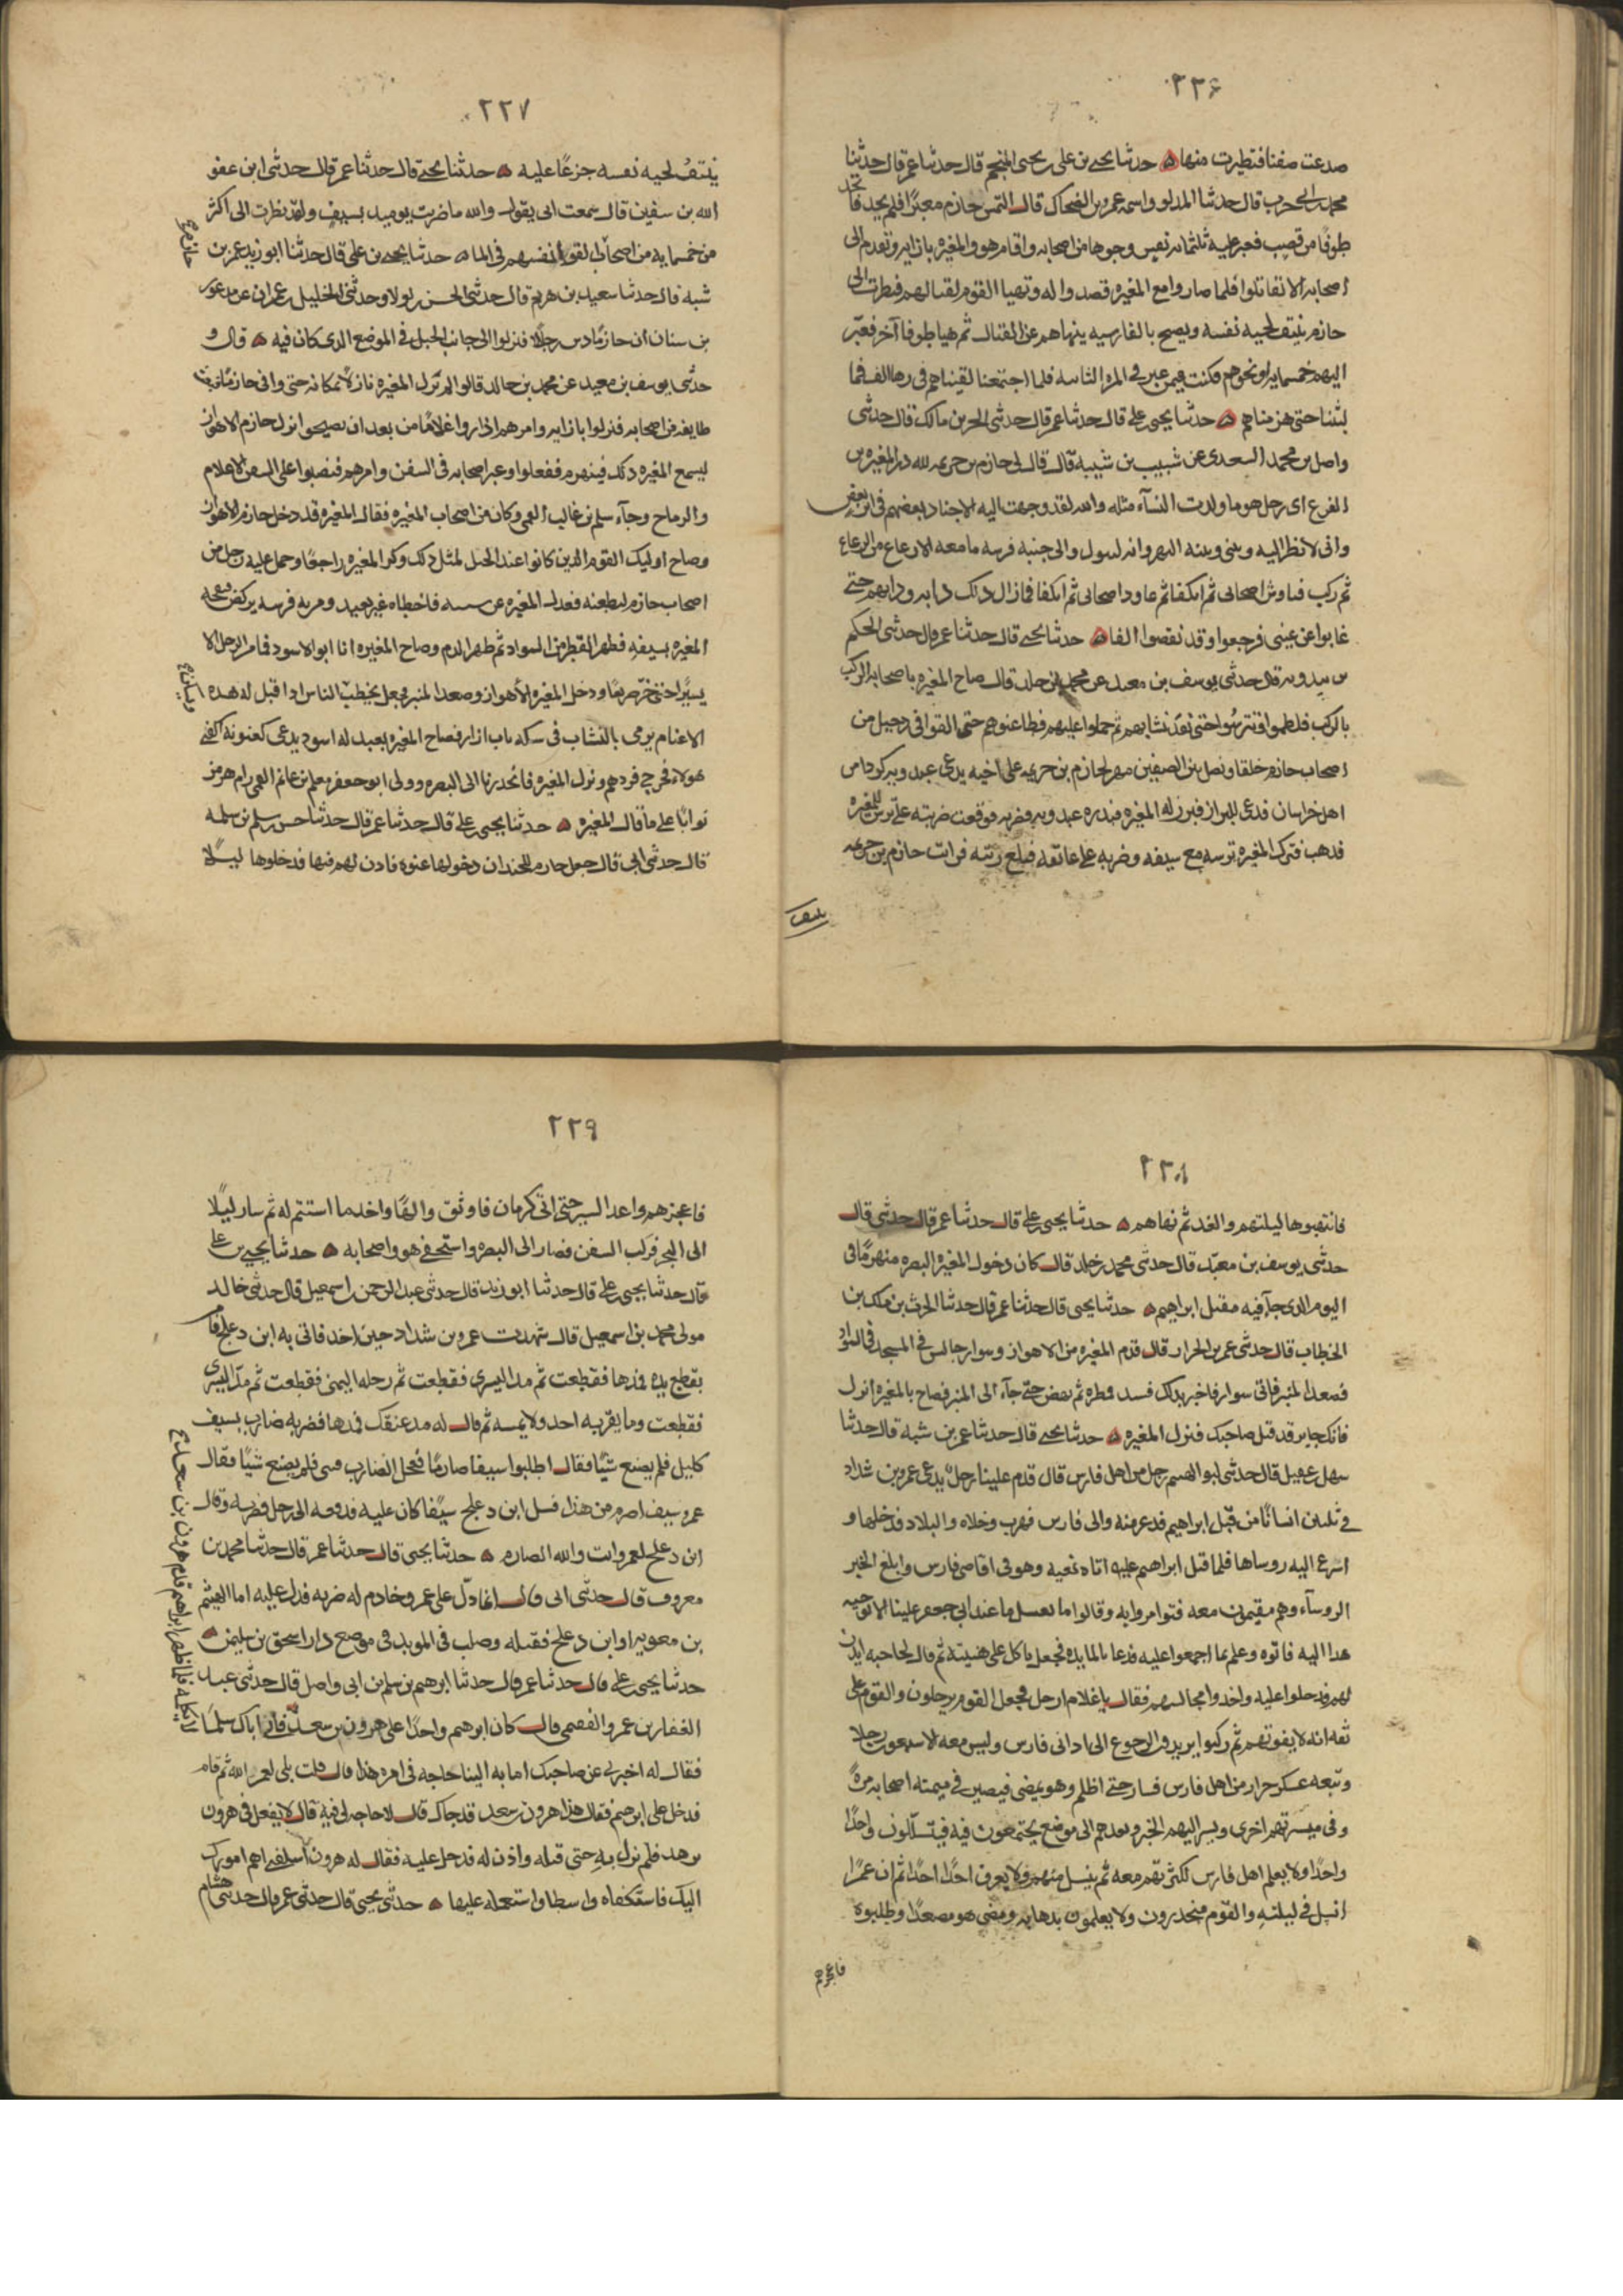 ٢٢٦
صدعت صفنا فتطيرت منها ه حدثنا يحيى بن علي بن يحيى المنجم قال حدثنا عمر قال حدثنا
محمد بن ابي حرب قال حدثنا المدلو واسمه عمرو بن الضحاك قال التمس خازم معبرا فلم يجد فاتخذ
طوفا من قصب فعبر عليه ثلثمائه نفس وجوها من اصحابه واقام هو والمغيره بازايه وتقدم الى
اصحابه الا تقاتلوا فلما صاروا مع المغيره قصد واله وتهيا القوم لقتالهم فنظرت الى
خازم ينتف لحيه نفسه ويصيح بالفارسيه ينهاهم عن القتال ثم هيا طوفا آخر فعبر
اليهم خمسمايه او نحوهم فكنت فيمن عبر في المره الثانيه فلما اجتمعنا لقيناهم في زها الف فما
لبثنا حتى هزمناهم ه حدثنا يحيى بن علي قال حدثنا عمر قال حدثني الحر بن مالك قال حدثني
واصل بن محمد السعدي عن شبيب بن شيبه قال قال لي خازم بن خزيمه لله در المغيره بن
الفزع اي رجل هو ما ولدت النسآء مثله والله لقد وجهت اليه الاجناد بعضهم في اثر بعض
واني لانظر اليه وبيني وبينه النهر وانه ليبول والى جنبه فرسه ما معه الا رعاع من الرعاع
ثم ركب فناوش اصحابي ثم انكفا ثم عاود اصحابي ثم انكفا فما زال ذلك دابه ودابهم حتى
غابوا عن عيني فرجعوا وقد نقصوا الفا ه حدثنا يحيى قال حدثنا عمر قال حدثني الحكم
بن بندويه قال حدثني يوسف بن معبد عن محمد بن خالد قال صاح المغيره باصحابه الركب
بالركب فلطموا فتترسوا حتى نفد نشابهم ثم حملوا عليهم فطاعنوهم حتى القوا في دجيل من
اصحاب خازم خلقا ونصل بين الصفين صهر لخازم بن خزيمه على اخيه يدعى عبدويه كردا من
اهل خراسان فدعى للبراز فبرز له المغيره فبدره عبدويه فضربه فوقعت ضربته على ترس المغيره
فذهب فترك المغيره ترسه مع سيفه وضربه على عاتقه فبلغ رئته فرات خازم بن خزيمه
ينتف
٢٢٧
ينتف لحيه نفسه جزعًا عليه ه حدثنا يحيى قال حدثنا عمر قال حدثني ابن عفو
الله بن سفين قال سمعت ابي يقول والله ما ضربت يوميذ بسيف ولقد نظرت الى اكثر
من خمسمايه من اصحاب القوا انفسهم في الما ه حدثنا يحيى بن علي قال حدثنا ابو زيد عمر بن
شبه قال حدثنا سعيد بن هريم قال حدثني الحسن بن بولا وحدثني الخليل بن عمران عن مدعور
بن سنان ان خازمًا دس رجلًا فنزلوا الى جانب الجبل في الموضع الذي كان فيه ه قال و
حدثني يوسف بن معبد عن محمد بن خالد قالوا لم تزل المغيره نازلًا مكانه حتى وافى خازم
طايفه من اصحابه فنزلوا بازايه وامرهم اذا روا اعلامًا من بعد ان يصيحوا نزل خازم الاهواز
ليسمع المغيره ذلك فينهزم ففعلوا وعبر اصحابه في السفن وامرهم فنصبوا على السفن الاعلام
والرماح وجآء سلم بن غالب القمي وكان من اصحاب المغيره فقال المغيره قد دخل خازم الاهواز
وصاح اوليك القوم الذين كانوا عند الجبل لمثل ذلك وكر المغيره راجعًا وحمل عليه رجل من
اصحاب خازم ليطعنه فعدل المغيره عن سننه فاخطاه غير بعيد ومر به فرسه يركض
المغيره بسيفه فظهر القطن السواد ثم ظهر الدم وصاح المغيره انا ابو الاسود فما مر الرجل الا
يسيرًا حتى خر صريعًا ودخل المغيره الاهواز وصعد المنبر فجعل يخطب الناس اذ اقبل له هذه
الاغنام يرمى بالنشاب في سكه باب ازار فصاح المغيره بعبد له اسود يدعى كعنونه اكفني
هولاء فخرج فردهم ونزل المغيره فانحدرنا الى البصره وولى ابو جعفر معلم بن غانم العمي رام هرمز
ثوابًا على ما قال المغيره ه حدثنا يحيى بن علي قال حدثنا عمر قال حدثنا حسن بن سلم بن سلمه
قال حدثني ابي قال جعل خازم للجند ان دخولها عنوه فاذن لهم فيها فدخلوها ليلًا
٢٢٨
فانتهبوها ليلتهم والغد ثم نهاهم ه حدثنا يحيى بن علي قال حدثنا عمر قال حدثني قال
حدثني يوسف بن معبد قال حدثني محمد بن خالد قال كان دخول المغيره البصره منهزمًا في
اليوم الذي جآ فيه مقتل ابراهيم ه حدثنا يحيى قال حدثنا عمر قال حدثنا الحرث بن ملك بن
الخطاب قال حدثني عمر بن الحرار قال قدم المغيره من الاهواز وسوار جالس في المسجد في السواد
فصعد المنبر فاتى سوار فاخبر بذلك فسد مطره ثم نهض حتى جآء الى المنبر فصاح بالمغيره انزل
فانك جاير قد قتل صاحبك فنزل المغيره ه حدثنا يحيى قال حدثنا عمر بن شبه قال حدثنا
سهل بن عقيل قال حدثني ابو الهيثم رجل من اهل فارس قال قدم علينا رجل يدعى عمرو بن شداد
في ثلثين انسانًا من قبل ابراهيم فدعر منه والى فارس فهرب وخلاه والبلاد فدخلها و
اسرع اليه روساها فلما قتل ابراهيم عليه اتاه نعيه وهو في اقاصي فارس وابلغ الخبر
الروسآء وهم مقيمون معه فتوامروا به وقالوا ما يغسل ما عند ابي جعفر علينا الا توجيه
هذا اليه فاتوه وعلم بما اجمعوا عليه فدعا بالمايده فجعل ياكل على هنيئه ثم قال لحاجبه ايذن
لهم فدخلوا عليه واخذوا مجالسهم فقال يا غلام ارحل فجعل القوم يرحلون والقوم على
ثقه انه لا يفوتهم ثم ركبوا يريدون الرجوع الى اداني فارس وليس معه الا سبعون رجلا
وتبعه عسكر جرار من اهل فارس فسار حتى اظلم وهو يمضي فيصير في ميمنه اصحابه مرة
وفي ميسرتهم اخرى ويسر اليهم الخبر ويعدهم الى موضع يجتمعون فيه فيتسللون واحدًا
واحدًا ولا يعلم اهل فارس لكثرتهم معه ثم ينسل منهم ولا يعرف احدًا احدًا ثم ان عمرًا
انسل في ليلته والقوم منحدرون ولا يعلمون بذهابه ومضى هو مصعدًا وطلبوه
فاعجزهم
٢٢٩
فاعجزهم واغذ السير حتى اتى كرمان فاوثق واليها واخذ ما استتم له ثم سار ليلًا
الى البحر فركب السفن فصار الى البصره واستخفى هو واصحابه ه حدثنا يحيى بن علي
قال حدثنا يحيى بن علي قال حدثنا ابو زيد قال حدثني عبد الرحمن بن اسمعيل قال حدثني خالد
مولى محمد بن اسمعيل قال شهدت عمرو بن شداد حين اخذ فاتي به ابن دعلج فامر
بقطع يده فمدها فقطعت ثم مد اليسرى فقطعت ثم رجله اليمنى فقطعت ثم مد اليسرى
فقطعت وما يقربه احد ولا يمسه ثم قال له مد عنقك فمدها فضربه ضارب بسيف
كليل فلم يصنع شيًا فقال اطلبوا سيفا صارمًا فعجل الضارب فنبى فلم يصنع شيًا فقال
عمرو سيف اصرم من هذا فسل ابن دعلج سيفًا كان عليه فدفعه الى رجل فضربه وقال
ابن دعلج لعمرو انت والله الصارم ه حدثنا يحيى قال حدثنا عمر قال حدثنا محمد بن
معروف قال حدثني ابي قال انما دل على عمرو خادم له ضربه فدل عليه اما الهيثم
بن معويه او ابن دعلج فقتله وصلب في المربد في موضع دار اسحق بن سليمن ه
حدثنا يحيى بن علي قال حدثنا عمر قال حدثنا ابرهيم بن سلم بن ابي واصل قال حدثني عبد
الغفار بن عمرو الفقمي قال كان ابرهيم واجدًا على هرون بن سعد فاتى اباك سلمًا
فقال له اخبرني عن صاحبك اما به الينا حاجه في امره هذا قال قلت بلى لعمر الله ثم قام
فدخل على ابرهيم فقال هذا هرون بن سعد قد جاك قال لا حاجه لي فيه قال لا تفعل في هرون
تزهد فلم تزل به حتى قبله واذن له فدخل عليه فقال له هرون استكفني اهم امورك
اليك فاستكفاه واسطا واستعمله عليها ه حدثني يحيى قال حدثني عمر قال حدثني هشام